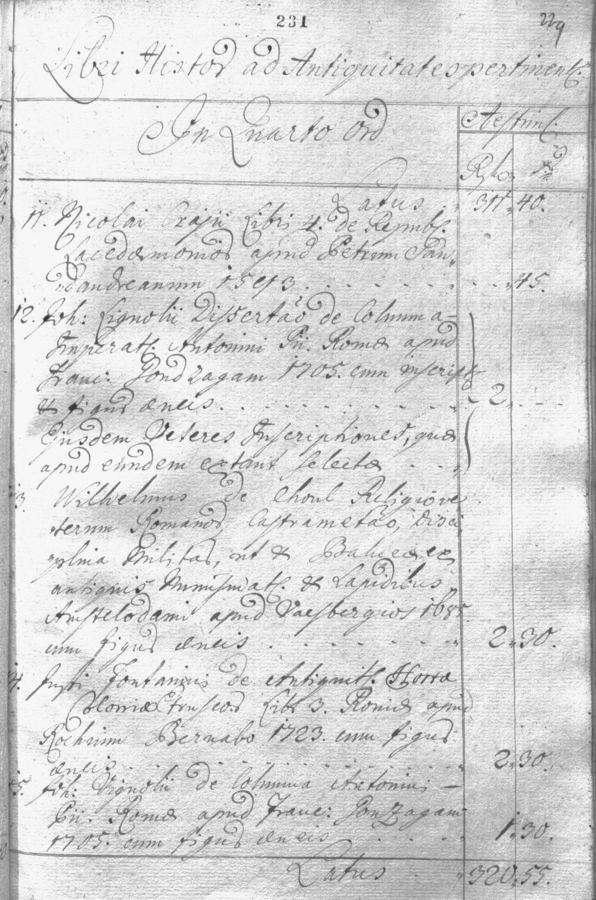 231
229
Libri Histor ad Antiquitates pertinent.
In Quarto Ord
Aestim.
Rth. Xr
Latus . . 311. 40.
11. Nicolai Cragii Libri 4. de Republ.
Lacedæmonior apud Petrum San-
dandreanum 1593. . . . . . . . . 45.
12. Joh: Vignolii Dissertaõ de Columna
Imperat. Antonini Pii. Romæ apud
Franc: Gondzagam 1705. cum inscript
& figuris æneis. . . . . . . . . 2.
Ejusdem Veteres Inscriptiones, quæ
apud eundem extant selectæ . . .
3. Wilhelmus de Choul Religio ve
terum Romanor, Castrametaõ, Disci
plina Militar, ut & Balneæ ex
antiquis Numismat. & Lapidibus
Amstelodami apud Vaesbergios 1685.
cum figuris æneis . . . . . . . . 2. 30.
4. Justi Fontanini de Antiquit. Hortæ
Coloniæ Etruscor Libr 3. Romæ apud
Rochum Bernabo 1723. cum figuris
æneis . . . . . . . . . . . 2. 30.
5. Joh: Vignolii de Columna Antonini
Pii. Romæ apud Franc: Gonzagam
1705. cum figuris æneis . . . . . 1. 30.
Latus 320. 55.